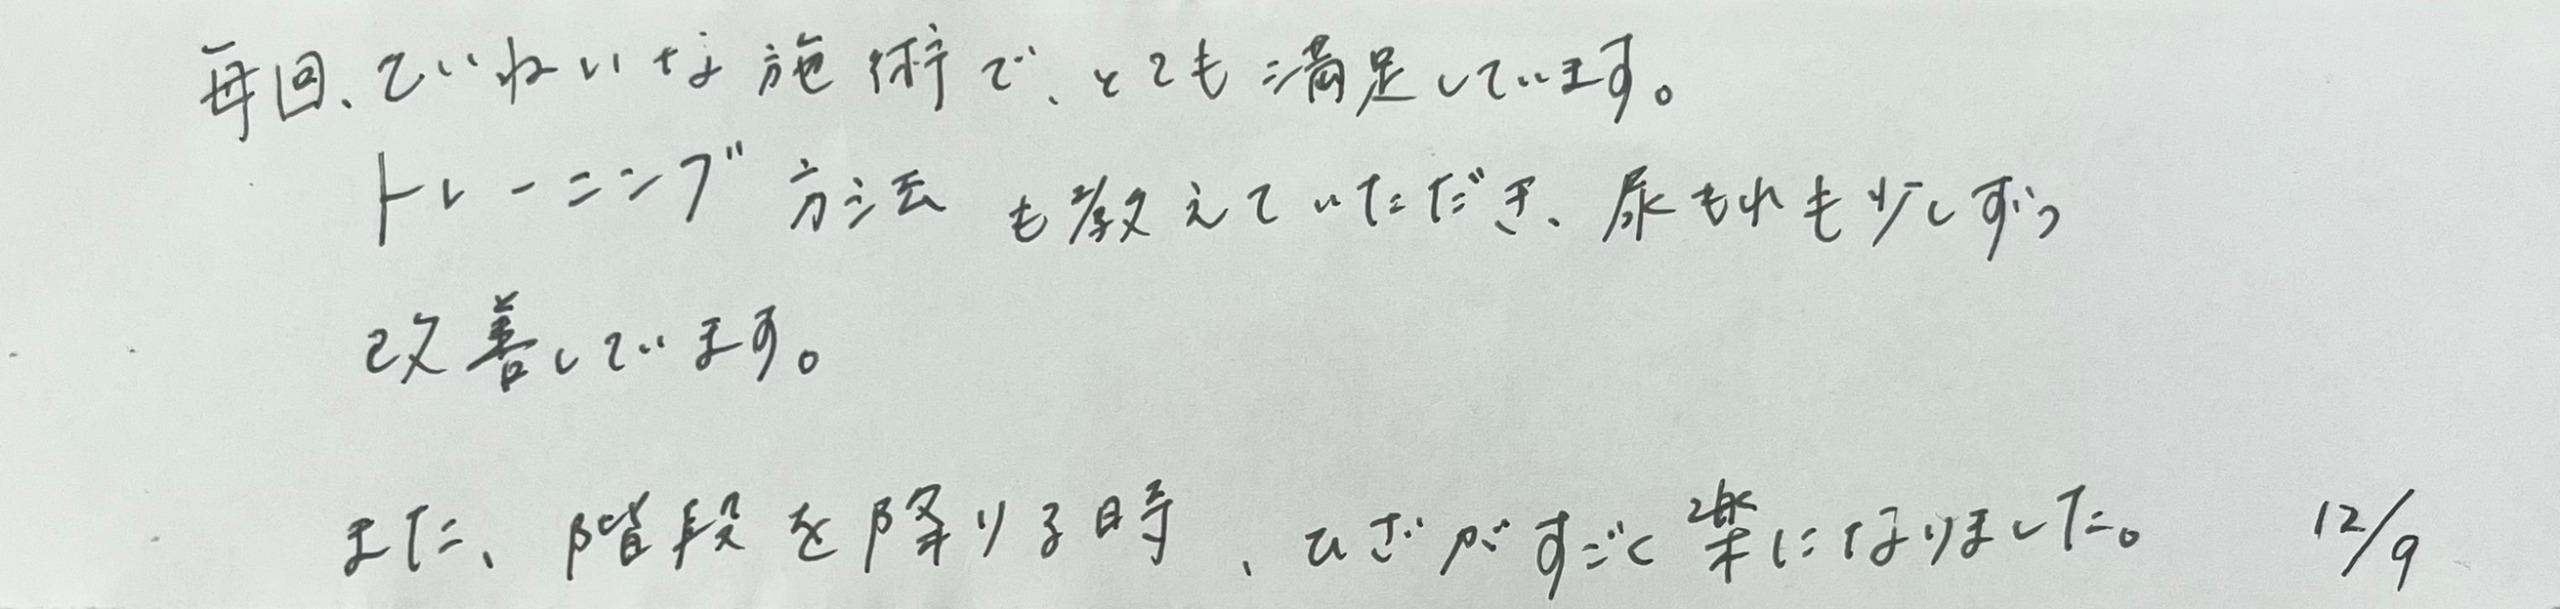 毎回、ていねいな施術で、とても満足しています。
トレーニング方法も教えていただき、尿もれも少しずつ
改善しています。
また、階段を降りる時、ひざがすごく楽になりました。 12/9